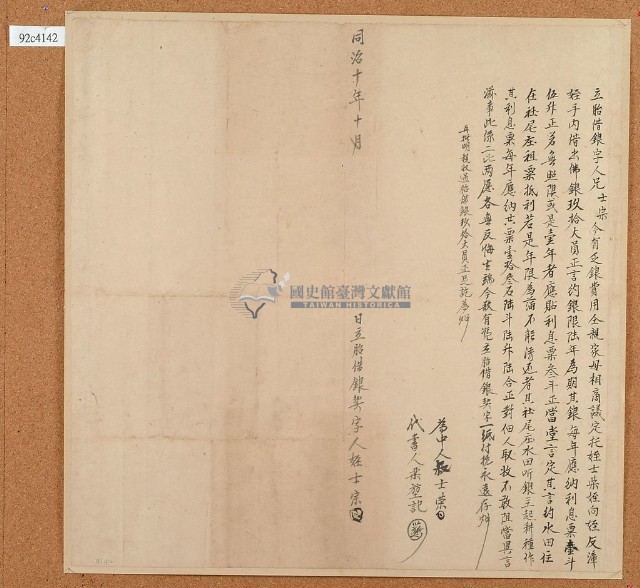 92c4142
立胎借銀字人兄士柴今有乏銀費用仝親家母相商議定托姪士柴姪向姪反漳
姪手內借出佛銀玖拾大員正言約銀限陸年為期其銀每年應納利息粟壹斗
伍升正若無照限或是壹年者應貼利息粟叁斗正當堂言定其言約水田住
在社尾庄租粟抵利若是年限為滿不能清还者其社尾庄水田听銀主起耕種作
其利息粟每年應納其粟壹拾叁石陸斗陸升陸合正對佃人取收不敢阻當異言
滋事此係二比兩愿各無反悔生端今欲有憑立胎借銀契字一紙付挑永遠存炤
再批明親收過胎借銀玖拾大員正足訖為炤
為中人叔士榮
代書人
同治十年十月 日立胎借銀契字人姪士宗
國史館臺灣文獻館
TAIWAN HISTORICA